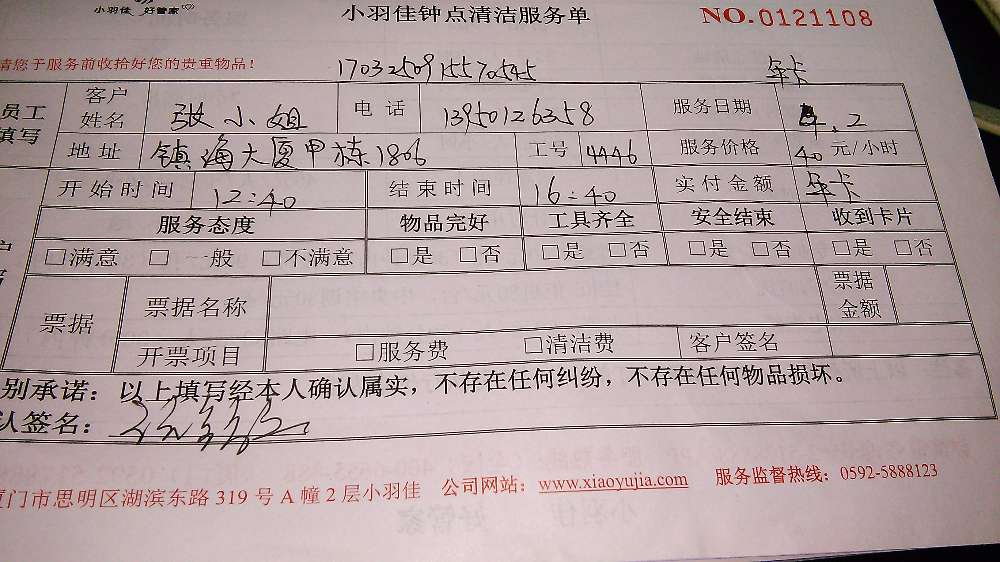 小羽佳 好管家 小羽佳钟点清洁服务单 NO.0121108
请您于服务前收拾好您的贵重物品!
17032509155570545 年卡
员工填写 客户姓名 张小姐 电话 13950126358 服务日期 4.2
地址 镇海大厦甲栋1806 工号 4446 服务价格 40元/小时
开始时间 12:40 结束时间 16:40 实付金额 年卡
服务态度 物品完好 工具齐全 安全结束 收到卡片
□满意 □一般 □不满意 □是 □否 □是 □否 □是 □否 □是 □否
票据 票据名称 票据金额
开票项目 □服务费 □清洁费 客户签名
别承诺：以上填写经本人确认属实，不存在任何纠纷，不存在任何物品损坏。
认签名：
厦门市思明区湖滨东路 319 号 A 幢 2 层小羽佳 公司网站：www.xiaoyujia.com 服务监督热线：0592-5888123